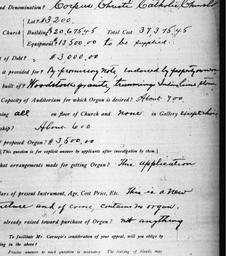 nd Denomination? Corpus Christi Catholic Church
Lot $3200.
Church Building $20,675.45 Total Cost 37,375.45
Equipment $13,500.00 to be supplied.
of Debt? $3,000.00
is provided for? By promissory note endorsed by
built of? Woodstock granite, trimmings Indiana limestone
Capacity of Auditorium for which Organ is desired? About 700.
ing all on floor of Church and none in Gallery
ship? About 600
f proposed Organ? $3,500.00
[This question is for explicit answer by applicants after investigation by them.]
hat arrangements made for getting Organ? This application
lars of present Instrument, Age, Cost Price, Etc. This is a new
cture and of course, contains no organ.
already raised toward purchase of Organ? not anything
To facilitate Mr. Carnegie's consideration of your appeal, will you oblig
ing in the above?
Precise answer to each question is necessary. The leaving of blanks may